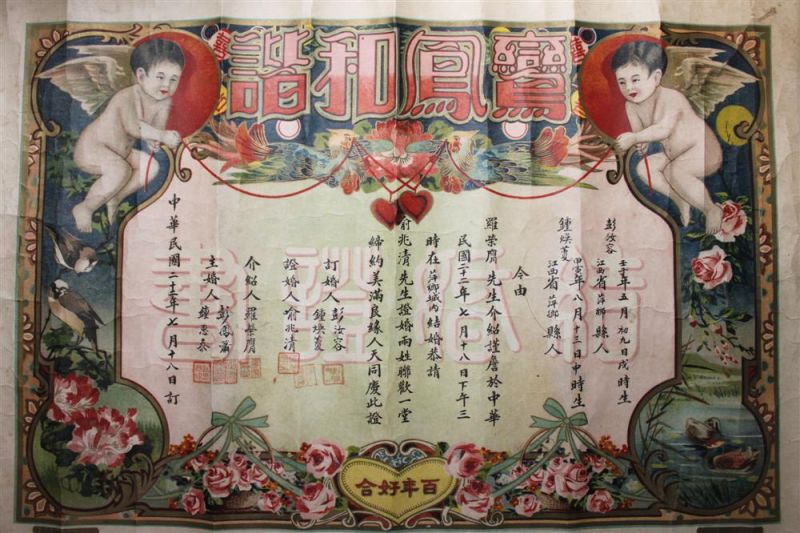 鸞鳳和諧
結婚證書
彭汝容 壬子年五月初九日戌時生
江西省萍鄉縣人
鍾煥菱 甲寅年八月十三日申時生
江西省萍鄉縣人
今由
羅榮膺先生介紹謹詹於中華
民國二十二年七月十八日下午三
時在萍鄉城內結婚恭請
俞兆清先生證婚兩姓聯歡一堂
締約美滿良緣人天同慶此證
訂婚人彭汝容
鍾煥菱
證婚人俞兆清
介紹人羅榮膺
主婚人彭鳳
鍾思泰
中華民國二十二年七月十八日訂
百年好合